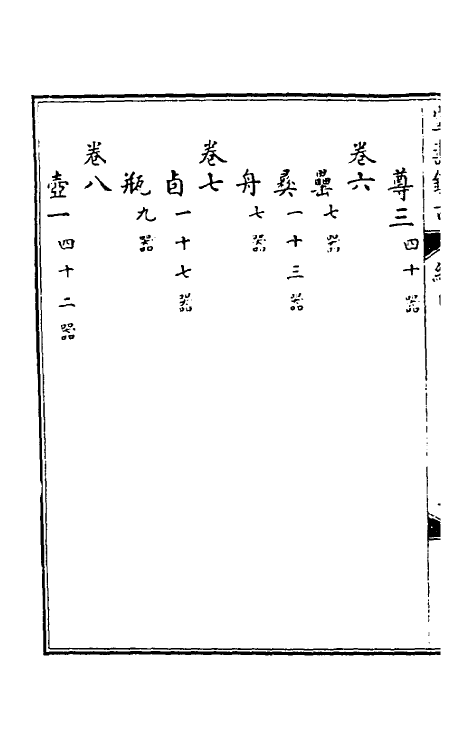 尊三四十器
卷六
罍七器
彝一十三器
舟七器
卷七
卣一十七器
瓶九器
卷八
壺一四十二器